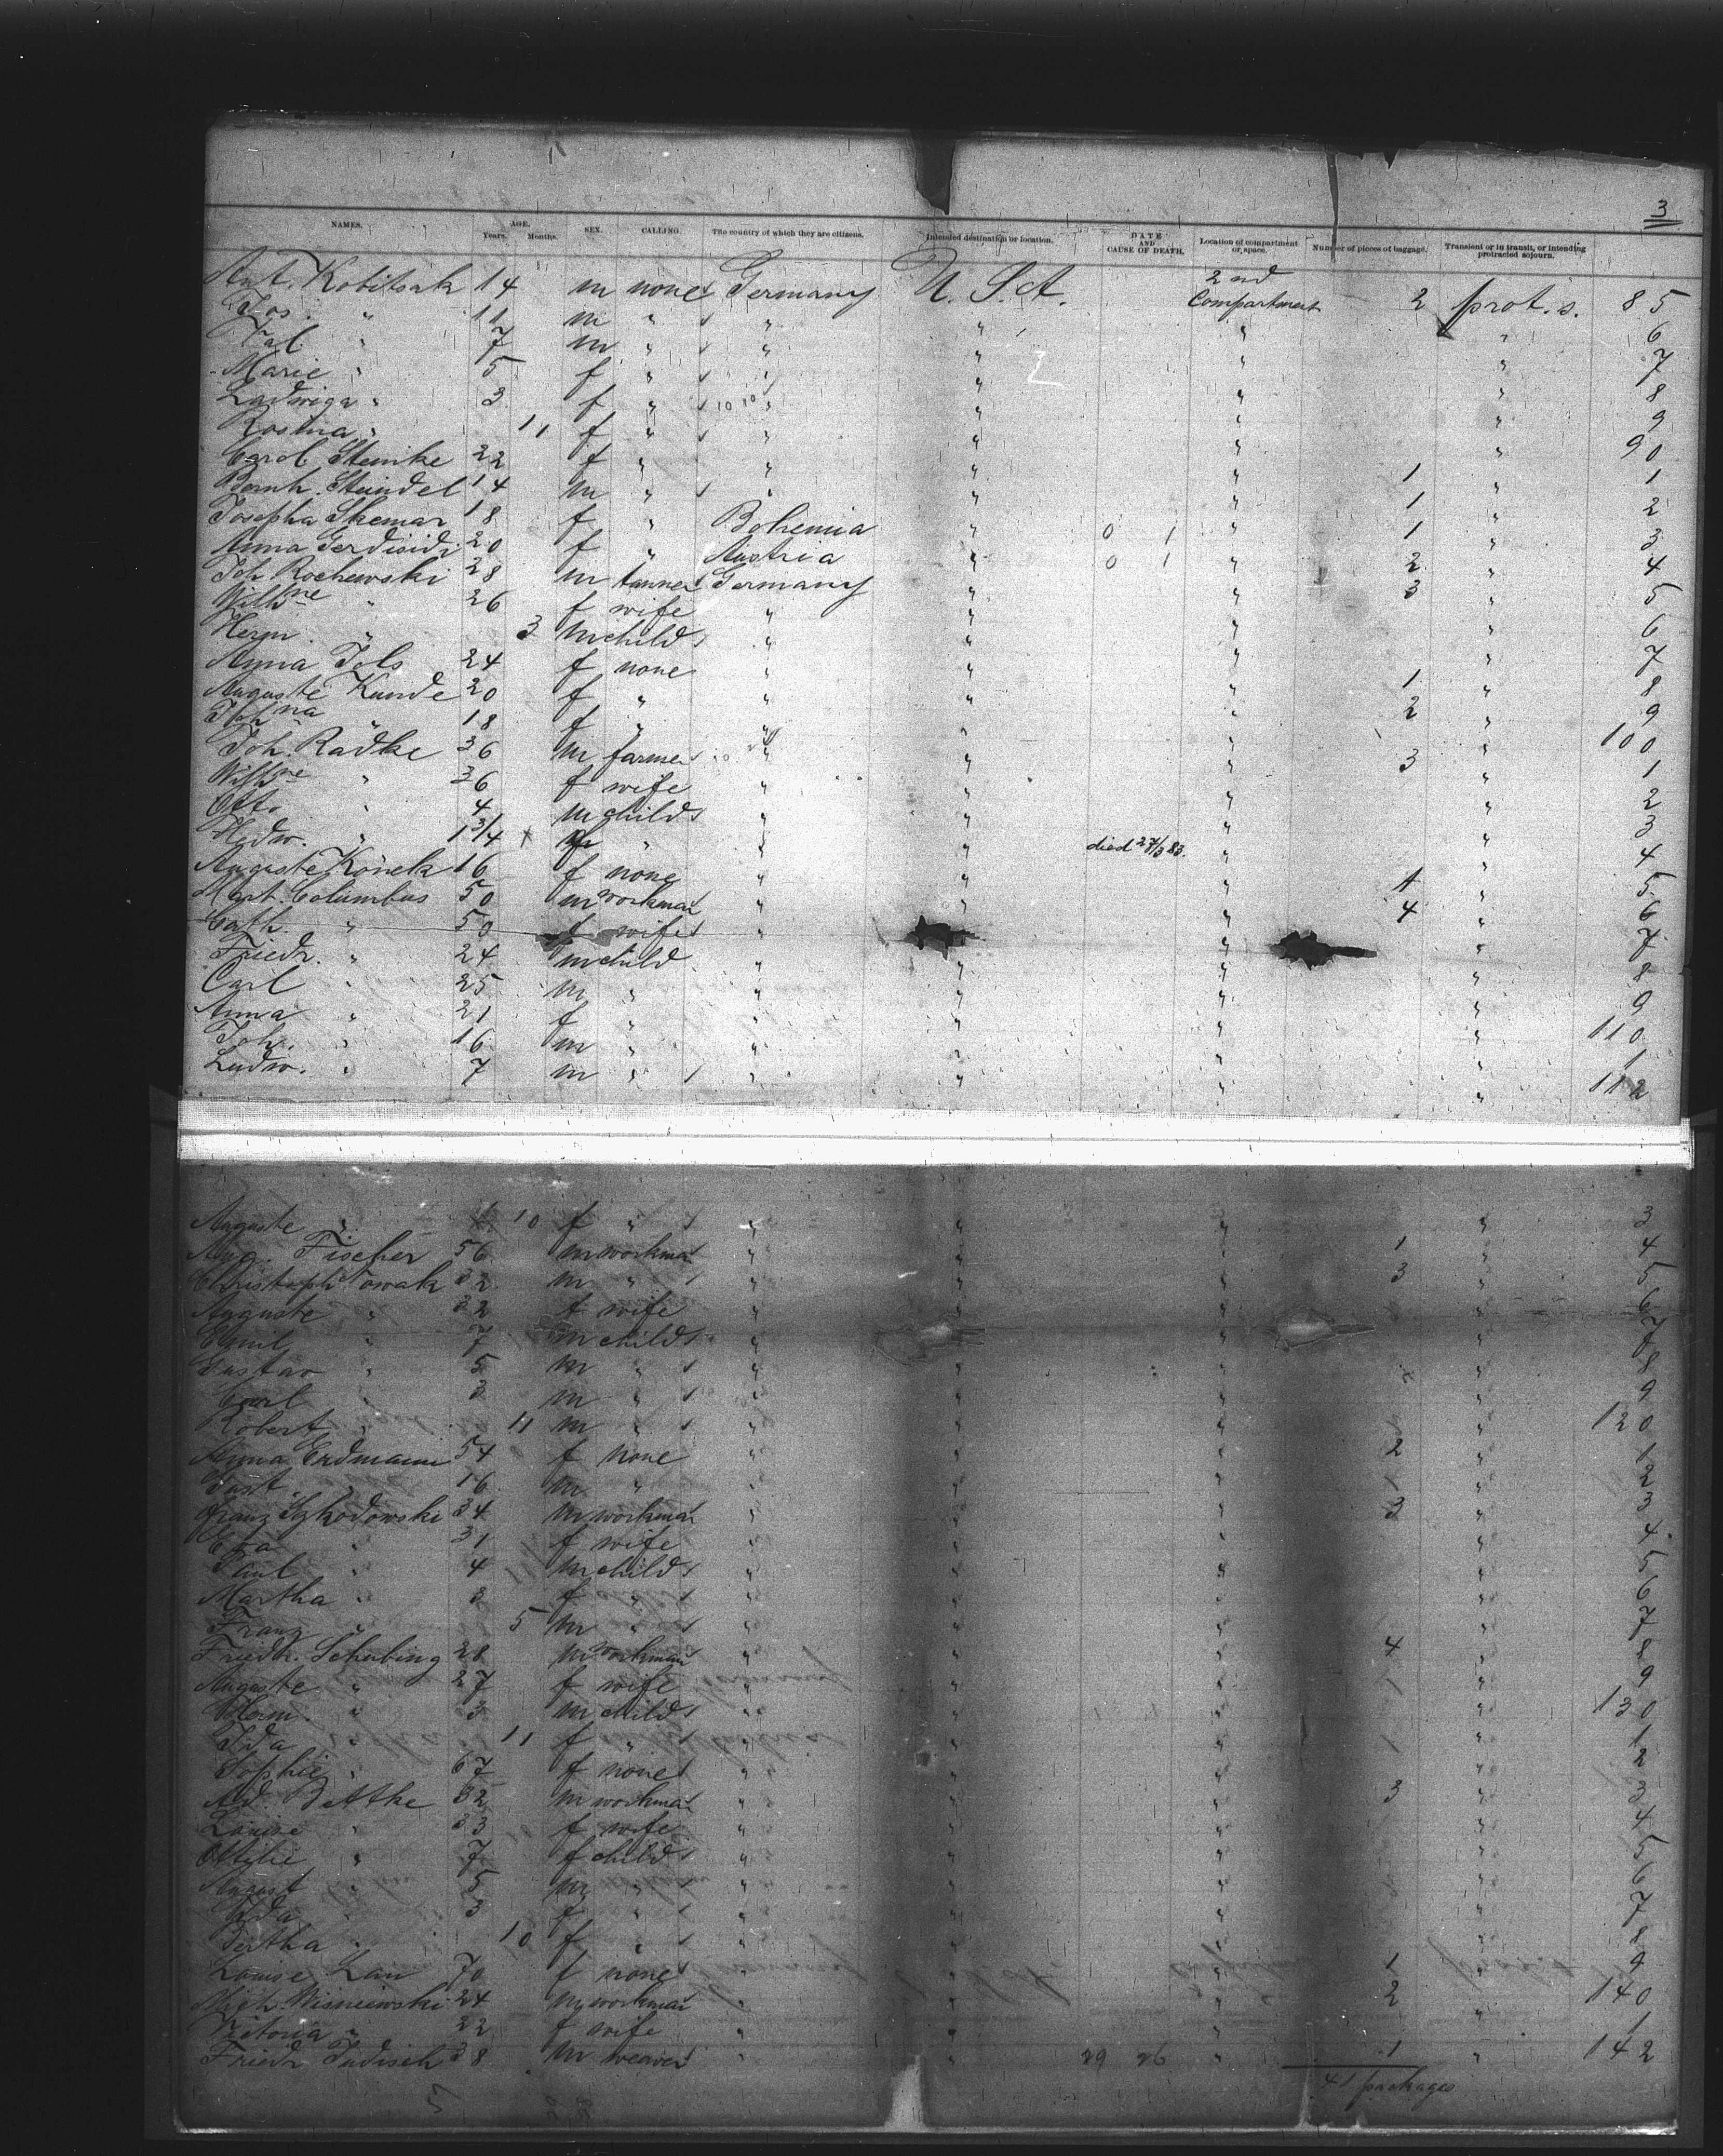 3
NAMES. AGE. Years. Months. SEX. CALLING. The country of which they are citizens. Intended destination or location. DATE AND CAUSE OF DEATH. Location of compartment or space. Number of pieces of baggage. Transient or in transit, or intending protracted sojourn.
Ant. Kobitsak 14 m none Germany U. S. A. 2nd Compartment 2 prot. s. 85
Jos. " 11 m " " " " " 6
Val. " 7 m " " " " " 7
Marie " 5 f " " " " " 8
Ladwiga " 3 f " " " " " 9
Rosina " 11 f " " " " " 90
Carol. Steinke 22 f " " " " 1 " 1
Bernh. Steindel 14 m " " " " 1 " 2
Josepha Skemar 18 f " Bohemia " 0 1 " 1 " 3
Anna 20 f " Austria " 0 1 " 2 " 4
Joh. Rochewski 28 m tanner Germany " " 3 " 5
Wilhne " 26 f wife " " " " 6
Herm. " 3 m child " " " " 7
Anna Jols 24 f none " " " 1 " 8
Auguste Kunde 20 f " " " " 2 " 9
Johna " 18 f " " " " " 100
Joh. Radke 36 m farmer " " " 3 " 1
Wilhne " 36 f wife " " " " 2
Otto " 4 m child " " " " 3
Hedw. " 1 3/4 f " " " died 27/3 83. " " 4
Auguste Köneck 16 f none " " " 1 " 5
Mart. Columbus 50 m workman " " " 4 " 6
Cath. " 50 f wife " " " 7
Friedr. " 24 m child " " " " 8
Carl " 25 m " " " " " 9
Anna " 21 f " " " " " 110
Joh. " 16 m " " " " " 1
Ludw. " 7 m " " " " " 112
Auguste " 10 f " " " " " 3
Aug. Fischer 56 m workman " " " 1 " 4
Christoph Nowak 32 m " " " " 3 " 5
Auguste " 32 f wife " " " " 6
Emil " 7 m child " " " " 7
Gustav " 5 m " " " " " 8
Carl " 3 m " " " " " 9
Robert " 11 m " " " " " 120
Anna Erdmann 54 f none " " " 2 " 1
Gust. " 16 m " " " " " 2
Franz Szkodowski 34 m workman " " " 3 " 3
Eva " 31 f wife " " " " 4
Paul " 4 m child " " " " 5
Martha " 3 f " " " " " 6
Franz " 5 m " " " " " 7
Friedr. Schubing 28 m workman " " " 4 " 8
Auguste " 27 f wife " " " " 9
Herm. " 3 m child " " " " 130
Ida " 11 f " " " " " 1
Sophie " 67 f none " " " " 2
Ad. Bettke 32 m workman " " " 3 " 3
Louise " 33 f wife " " " " 4
Ottilie " 7 f child " " " " 5
August " 5 m " " " " " 6
Ida " 3 f " " " " " 7
Bertha " 10 f " " " " " 8
Louise Lau 70 f none " " " 1 " 9
Mich. Wisniewski 24 m workman " " " 2 " 140
Victoria " 22 f wife " " " " 1
Friedr. Judisch 38 m weaver " " 29 26 " 1 " 142
41 packages